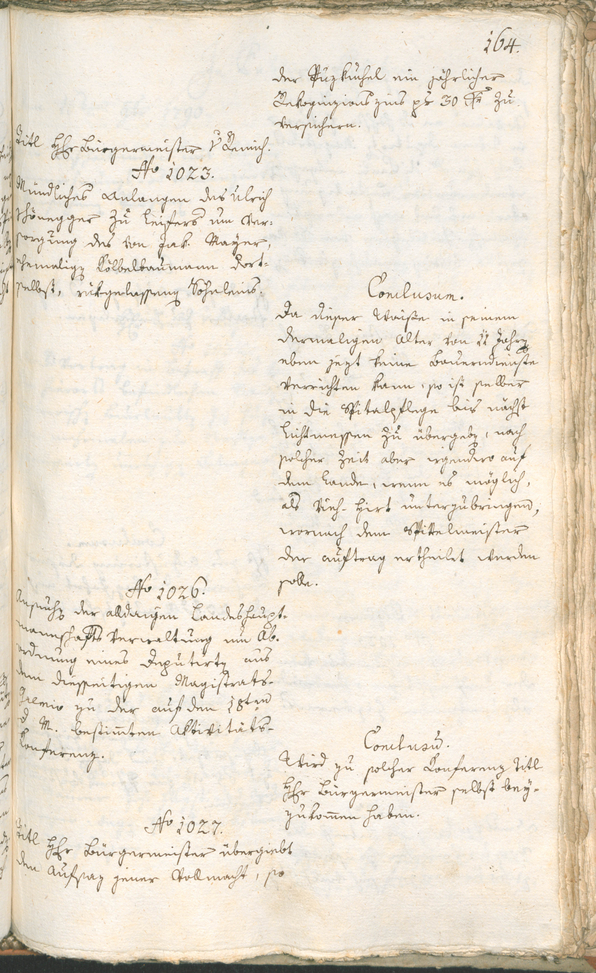 164.
der Putzküchel ein jährlicher
Rekognizionszins pr 30 Kr zu
versichern.
Titl Hhr Bürgermeister
No 1023.
Mündliches Anlangen des Ulrich
Schönegger zu Leifers um Ver-
sorgung des von Jak. Mayer,
ehemalign Kölbelbaumann dort-
selbst, rükgelassenen Söhnleins.
Conclusum.
Da dieser Waise in seinem
dermaligen Alter von 11 Jahrn
eben jezt keine Bauerndienste
verrichten kann, so ist selber
in die Spitalpflege bis nächst
Lichtmessen zu übergebn, nach
solcher Zeit aber irgendwo auf
dem Lande, wenn es möglich,
als Vieh-Hirt unterzubringen,
wornach dem Spittelmeister
der Auftrag ertheilet werden
solle.
No 1026.
Ansuchn der alldaigen Landeshaupt-
mannschafts Verwaltung um Ab-
ordnung eines Deputirtn aus
dem diesseitigen Magistrats-
Gremio zu der auf den 18ten
d. M. bestimten Aktivitäts-
Konferenz.
Conclusum.
Wird zu solcher Conferenz Titl
Hhr Bürgermeister selbst bey-
zukomen haben.
No 1027.
Titl Hhr Bürgermeister übergiebt
den Aufsaz jener Vollmacht, so